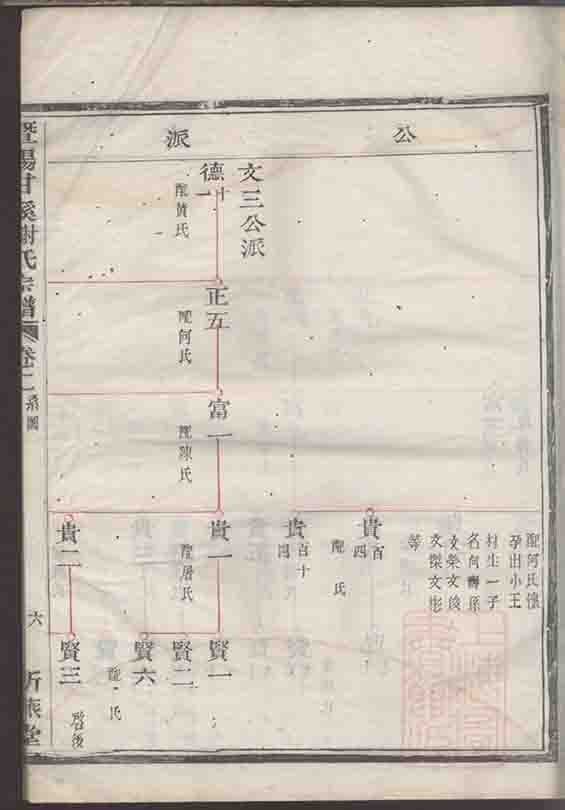 公
派
配何氏懷
孕出小王
村生一子
名何壽孫
文榮文俊
文傑文彬
等
貴百四
配 氏
貴百十四
文三公派
德十一
配黃氏
正五
配何氏
富一
配陳氏
貴一
配屠氏
貴二
賢一
賢二
賢六
配 氏
賢三
啓後
暨陽甘溪謝氏宗譜
卷二
系圖
六